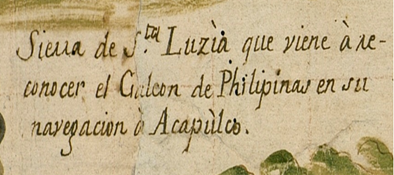 Sierra de S.ta Luzìa que viene à re-
conocer el Galeon de Philipinas en su
navegacion à Acapùlco.